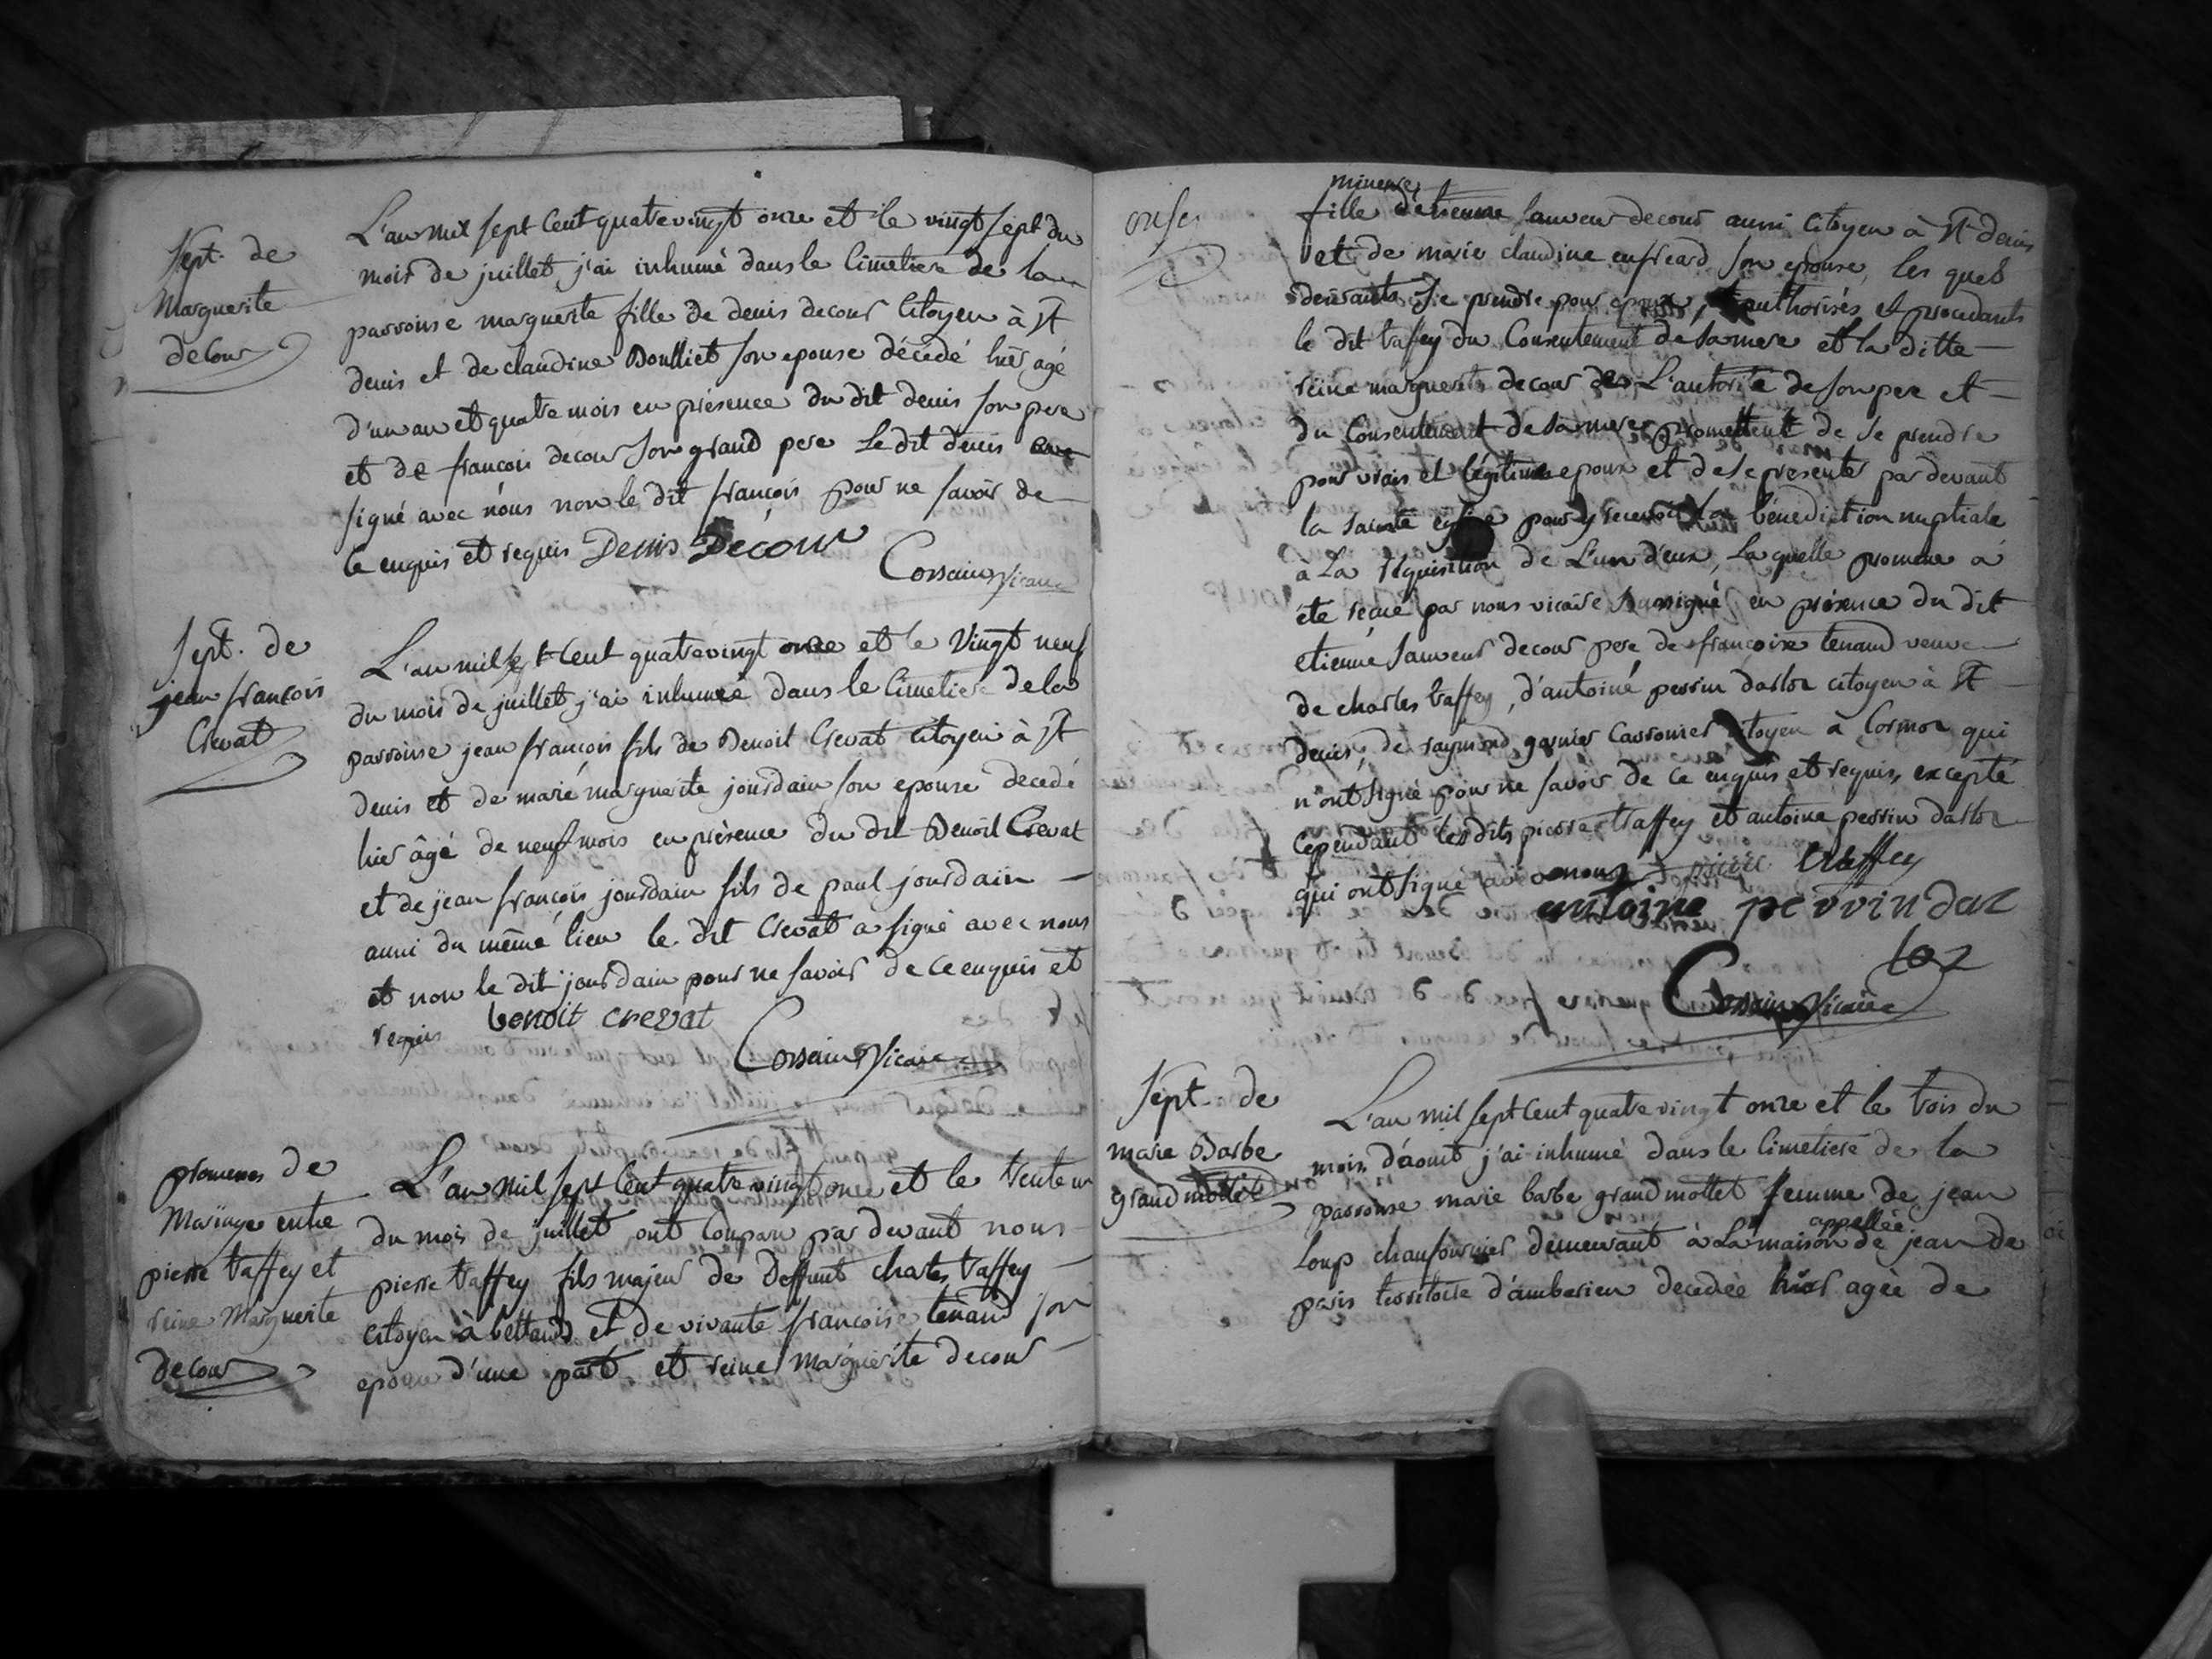 Sept. de
Marguerite
decour
L'an mil sept Cent quatre vingt onze et le vingt sept du
mois de juillet j'ai inhumé dans le Cimetiere de la
parroisse marguerite fille de denis decour Citoyen à St
denis et de claudine Doulliet son epouse décedé hier agé
d'un an et quatre mois en présence du dit denis son pere
et de françois decour son grand pere Le dit denis
signé avec nous non le dit françois pour ne savoir de
Ce enquis et requis Denis Decour
Corsain Vicaire
Sept. de
jean françois
Crevat
L'an mil sept Cent quatre vingt onze et le Vingt neuf
du mois de juillet j'ai inhumé dans le Cimetiere de la
parroisse jean françois fils de Benoit Crevat Citoyen à St
denis et de marie marguerite jourdain son epouse decedé
hier âgé de neuf mois en présence du dit Benoit Crevat
et de jean françois jourdain fils de paul jourdain
aussi du même lieu le dit Crevat a signé avec nous
et non le dit jourdain pour ne savoir de Ce enquis et
requis benoit crevat
Corsain Vicaire
promesses de
Mariage entre
pierre traffey et
reine Marguerite
decour
L'an mil sept Cent quatre vingt onze et le trente un
du mois de juillet ont Comparu par devant nous
pierre traffey fils majeur de deffunt charles traffey
Citoyen à bettand et de vivante françoise tenand son
epouse d'une part et reine Marguerite decour
mineure
fille d'étienne sauveur decour aussi Citoyen à St denis
et de marie claudine son epouse, les quels
desirants se prendre pour epoux, authorisés et procedants
le dit traffey du Consentement de sa mere et la ditte
reine marguerite decour de L'autorité de son pere et
du Consentement de sa mere promettent de se prendre
pour vrais et légitime epoux et de se presenter par devant
la sainte eglise pour y recevoir la bénediction nuptiale
à La réquisition de L'un d'eux, La quelle promesse a
été reçue par nous vicaire soussigné en présence du dit
etienne sauveur decour pere de françoise tenand veuve
de charles traffey, d'antoine perrin darloz citoyen à St
denis, de raymond garnier Citoyen à Cormoz qui
n'ont signé pour ne savoir de Ce enquis et requis, excepté
Cependant les dits pierre traffey et antoine perrin darloz
qui ont signé avec nous pierre traffey
antoine perrin dar
loz
Corsain Vicaire
Sept. de
marie Barbe
grand mottet
L'an mil sept Cent quatre vingt onze et le trois du
mois d'aout j'ai inhumé dans le Cimetiere de la
parroisse marie barbe grand mottet femme de jean
appellée
Loup chaufournier demeurant à La maison de jean de
paris territoire d'amberieu decedée hier agée de